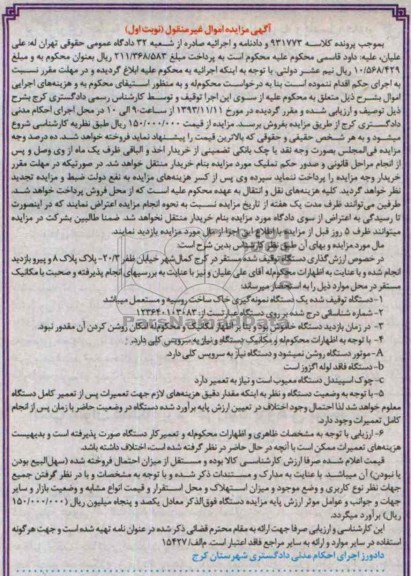 آگهی مزایده اموال غیر منقول (نوبت اول)
بموجب پرونده کلاسه ۹۳۱۷۷۳ و دادنامه و اجرائیه صادره از شعبه ۳۲ دادگاه عمومی حقوقی تهران له: علی
علیان، علیه: داود قاسمی محکوم علیه محکوم است به پرداخت مبلغ ۲۱۱/۳۶۸/۵۸۳ ریال بعنوان محکوم به و مبلغ
۱۰/۵۶۸/۴۲۹ ریال نیم عشر دولتی. با توجه به اینکه اجرائیه به محکوم علیه ابلاغ گردیده و در مهلت مقرر نسبت
به اجرای حکم اقدام ننموده است بنا به درخواست محکوم‌له و به منظور استیفای محکوم به و هزینه‌های اجرایی
اموال بشرح ذیل متعلق به محکوم علیه از سوی این اجرا توقیف و توسط کارشناس رسمی دادگستری کرج بشرح
ذیل توصیف و ارزیابی شده و مقرر گردیده در مورخ ۱۳۹۳/۱۱/۱ از ساعت ۹ الی ۱۰ در محل اجرای احکام مدنی
دادگستری کرج از طریق مزایده بفروش برسد. مزایده از قیمت ۱۵۰/۰۰۰/۰۰۰ ریال طبق نظریه کارشناسی شروع
میشود و به هر شخص حقیقی و حقوقی که بالاترین قیمت را پیشنهاد نماید فروخته خواهد شد. ده درصد وجه
مزایده فی‌المجلس بصورت وجه نقد یا چک بانکی تضمینی از خریدار اخذ و الباقی ظرف یک ماه از وی وصل و پس
از انجام مراحل قانونی و صدور حکم تملیک مورد مزایده بنام خریدار منتقل خواهد شد. در صورتیکه در مهلت مقرر
خریدار وجه مزایده را پرداخت ننماید سپرده وی پس از کسر هزینه‌های مزایده به نفع دولت ضبط و مزایده تجدید
نظر خواهد گردید. کلیه هزینه‌های نقل و انتقال به عهده محکوم علیه است که از محل فروش پرداخت خواهد شد.
طرفین می‌توانند ظرف مدت یک هفته از تاریخ مزایده نسبت به نحوه انجام مزایده اعتراض نمایند که در اینصورت
تا رسیدگی به اعتراض از سوی دادگاه مورد مزایده بنام خریدار منتقل نخواهد شد. ضمنا طالبین شرکت در مزایده
میتوانند ظرف ۵ روز قبل از مزایده با اطلاع این اجرا از مال مورد مزایده بازدید نمایند.
مال مورد مزایده و بهای آن طبق نظر کارشناس بدین شرح است:
در خصوص ارزش‌گذاری دستگاه توقیف شده مستقر در کرج کمال‌شهر خیابان ظفر ۲۰/۳- پلاک پلاک ۸ و پیرو بازدید
انجام شده و با عنایت به اظهارات محکوم‌له آقای علی علیان و نیز با عنایت به بررسیهای انجام پذیرفته و صحبت با مکانیک
مستقر در محل موارد ذیل را به استحضار میرساند:
۱- دستگاه توقیف شده یک دستگاه نمونه گیری خاک ساخت روسیه و مستعمل میباشد
۲- شماره شناسائی درج شده بر روی دستگاه عبارتست از: ۱۲۳۶۴۰۱۰۳۰۸۳
۳- در زمان بازدید دستگاه خاموش بوده و بنا بر اظهار مکانیک و محکوم‌له امکان روشن کردن آن مقدور نبود.
۴- با توجه به اظهارات محکوم‌له و مکانیک دستگاه نیاز به سرویس کلی دارد.
A- موتور دستگاه روشن نمیشود و دستگاه نیاز به سرویس کلی دارد.
b- دستگاه فاقد لوله اگزوز است
c- چوک اسپیندل دستگاه معیوب است و نیاز به تعمیر دارد
۵- با توجه به وضعیت دستگاه و نظر به اینکه مقدار دقیق هزینه‌های لازم جهت تعمیرات پس از تعمیر کامل دستگاه
معلوم خواهد شد. لذا احتمال وجود اختلاف در تعیین ارزش پایه برآورد شده دستگاه در وضعیت حاضر با زمان پس از انجام
کامل تعمیرات وجود دارد.
۶- ارزیابی با توجه به مشخصات ظاهری و اظهارات محکوم‌له و تعمیرکار دستگاه صورت پذیرفته است و بدیهیست
هزینه‌های تعمیرات ممکن است با آنچه در حال حاضر در نظر گرفته شده است، اختلاف داشته باشد.
قیمت اعلام شده صرفا ارزش کارشناسی کالا بوده و مستقل از میزان احتمال فروخته شده (سهل‌البیع بودن
یا نبودن) آن میباشد. با عنایت به مدارک و مستندات ذکر شده و با توجه به مشخصات و با در نظر گرفتن جمیع
جهات نظر نوع کاربری و وضع موجود و میزان استهلاک و محل استقرار و قیمت انواع مشابه و وضعیت بازار و سایر
جهات و جوانب و عوامل موثر ارزش پایه مزایده دستگاه فوق‌الذکر معادل یکصد و پنجاه میلیون ریال (۱۵۰/۰۰۰/۰۰۰
ریال) برآورد میگردد.
این کارشناسی و ارزیابی صرفا جهت ارائه به مقام محترم قضائی ذکر شده در عنوان نامه تهیه شده است و جهت هرگونه
استفاده در سایر موارد و ارائه به سایر مراجع فاقد اعتبار است. م/الف/ ۱۵۴۲۷
دادورز اجرای احکام مدنی دادگستری شهرستان کرج